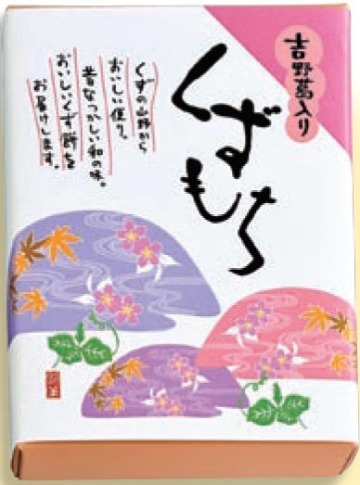 吉野葛入り
くずもち
くずの山野から
おいしい便り。
昔なつかしい和の味。
おいしいくず餅を
お届けします。